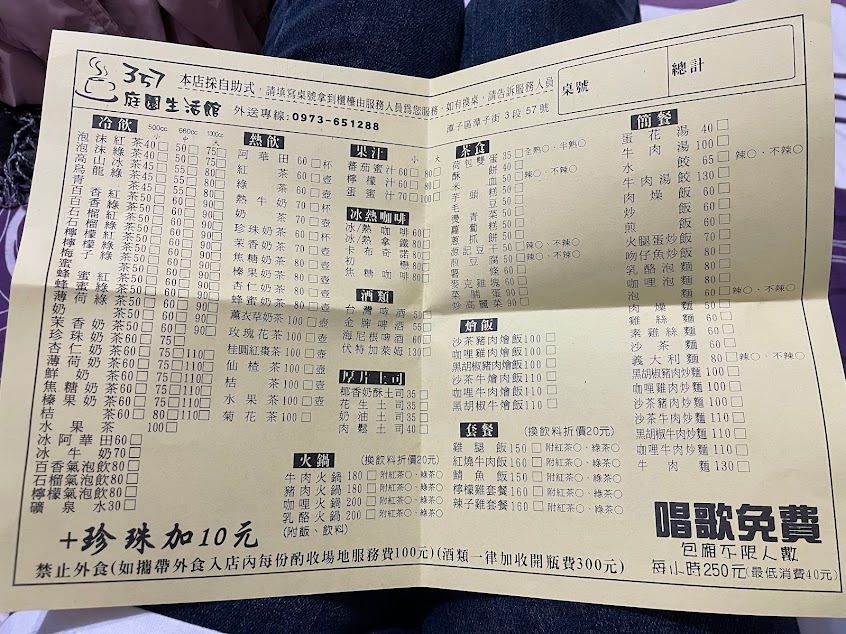 357
庭園生活館
本店採自助式，請填寫桌號拿到櫃檯由服務人員為您服務，如有換桌，請告訴服務人員
外送專線：0973-651288
潭子區潭子街 3 段 57 號
桌號
總計
冷飲
500cc 660cc 1000cc
小 中 大
泡沫紅茶 40□ 50□ 75□
泡沫綠茶 40□ 50□ 75□
高山冰茶 45□ 55□ 80□
烏龍
青
百香紅茶
百香綠茶
石榴紅茶
石榴綠茶
檸檬紅茶
檸檬綠茶
梅子綠茶
蜜茶
蜂蜜紅茶
蜂蜜綠茶
薄荷綠茶
奶茶
茉香奶茶
珍珠奶茶
杏仁奶茶
薄荷奶茶
鮮奶茶
焦糖奶茶
榛果奶茶
桔茶 60□ 80□ 110□
水果茶 100□
冰阿華田 60□
冰牛奶 70□
百香氣泡飲 80□
石榴氣泡飲 80□
檸檬氣泡飲 80□
礦泉水 30□
+珍珠加10元
熱飲
阿華田 60□杯
紅茶 60□壺
綠茶 60□壺
熱牛奶 70□壺
奶茶 70□壺
珍珠奶茶 60□杯
茉香奶茶 70□壺
焦糖奶茶 80□壺
榛果奶茶 80□壺
杏仁奶茶 80□壺
蜂蜜奶茶 80□壺
薰衣草奶茶 100□壺
玫瑰花茶 100□壺
桂圓紅棗茶 100□壺
仙楂茶 100□壺
桔茶 100□壺
水果茶 100□壺
菊花茶 100□壺
果汁
小 大
蕃茄蜜汁 60□ 80□
檸檬汁 60□ 80□
蛋蜜汁 70□ 100□
冰熱咖啡
冰/熱咖啡 60□
冰/熱拿鐵 80□
卡布奇諾 80□
初戀 80□
焦糖咖啡 80□
酒類
台灣啤酒 50□
金牌啤酒 55□
海尼根啤酒 60□
伏特加萊姆 130□
厚片土司
椰香奶酥土司 35□
花生土司 35□
奶油土司 35□
肉鬆土司 40□
火鍋
(換飲料折價20元)
牛肉火鍋 180□ 附紅茶○、綠茶○
豬肉火鍋 180□ 附紅茶○、綠茶○
咖哩火鍋 200□ 附紅茶○、綠茶○
乳酪火鍋 200□ 附紅茶○、綠茶○
(附飯、飲料)
茶食
荷包雙蛋 35□ 全熟○、半熟○
酥餅 40□
米血 50□ 辣○、不辣○
芋頭糕 50□
毛豆 50□
燙青菜 50□
蘿蔔糕 50□
蔥抓餅 50□
滷記豆干 50□ 辣○、不辣○
煎豆腐 50□ 辣○、不辣○
薯條 60□
麥克雞塊 60□
菜脯蛋 90□
炒高麗菜 90□
燴飯
沙茶豬肉燴飯 100□
咖哩雞肉燴飯 100□
黑胡椒豬肉燴飯 100□
沙茶牛肉燴飯 110□
咖哩牛肉燴飯 110□
黑胡椒牛燴飯 110□
套餐
(換飲料折價20元)
雞腿飯 150□ 附紅茶○、綠茶○
紅燒牛肉飯 160□ 附紅茶○、綠茶○
鯖魚飯 150□ 附紅茶○、綠茶○
檸檬雞套餐 160□ 附紅茶○、綠茶○
辣子雞套餐 160□ 附紅茶○、綠茶○
簡餐
蛋花湯 40□
牛肉湯 100□
水餃 65□ 辣○、不辣○
牛肉湯餃 130□ 辣○、不辣○
肉燥飯
炒飯 60□
煎飯 60□
火腿蛋炒飯 70□
吻仔魚炒飯 80□
乳酪泡麵 80□
咖哩泡麵 80□
泡麵 60□ 辣○、不辣○
肉燥麵 50□
雞絲麵 60□
素雞絲麵 60□
沙茶麵 60□
義大利麵 80□ 辣○、不辣○
黑胡椒豬肉炒麵 100□
咖哩雞肉炒麵 100□
沙茶豬肉炒麵 100□
沙茶牛肉炒麵 110□
黑胡椒牛肉炒麵 110□
咖哩牛肉炒麵 110□
牛肉麵 130□
唱歌免費
包廂不限人數
每小時250元(最低消費40元)
禁止外食(如攜帶外食入店內每份酌收場地服務費100元)(酒類一律加收開瓶費300元)